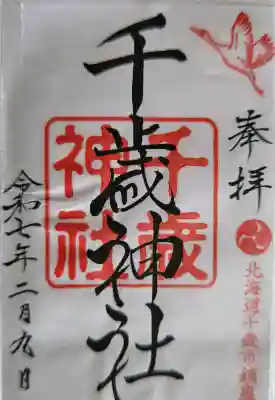 奉拝
北海道千歳市鎮座
千歳神社
千歳
神社
令和七年二月九日